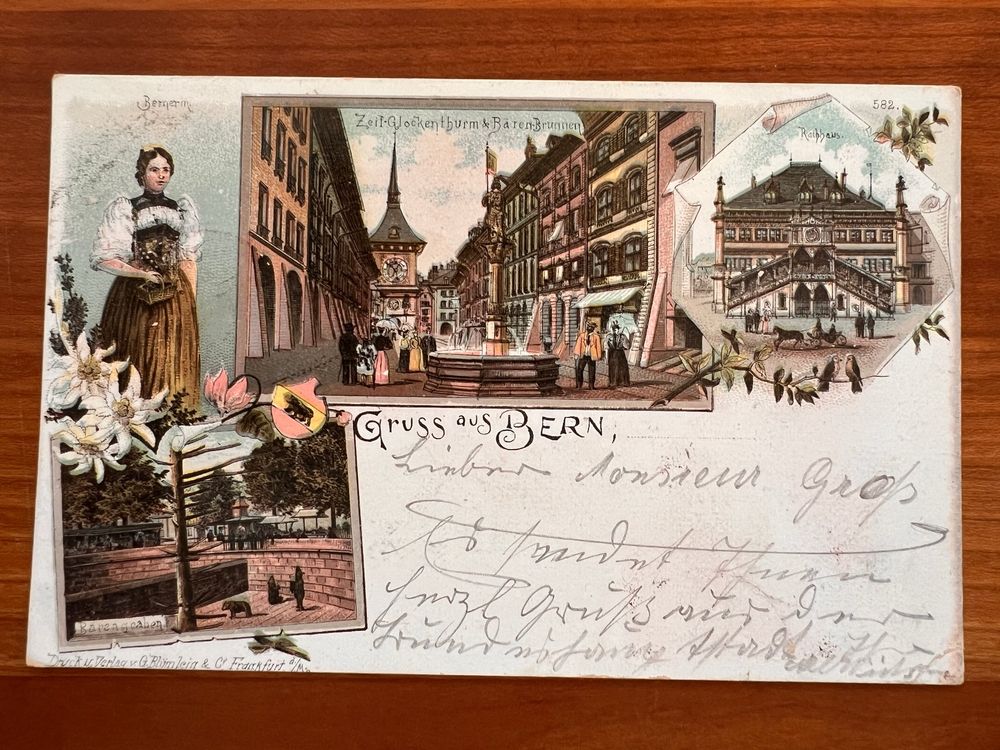 Bernerin
Zeit-Glockenthurm & Bären-Brunnen
582.
Rathhaus.
Gruss aus BERN,
Lieber Monsieur Groß
Es sendet Ihnen
herzl Gruß aus der
Bundeshaus Stadt
Bärengraben
Druck u. Verlag v. G. Blümlein & Co Frankfurt a/M.